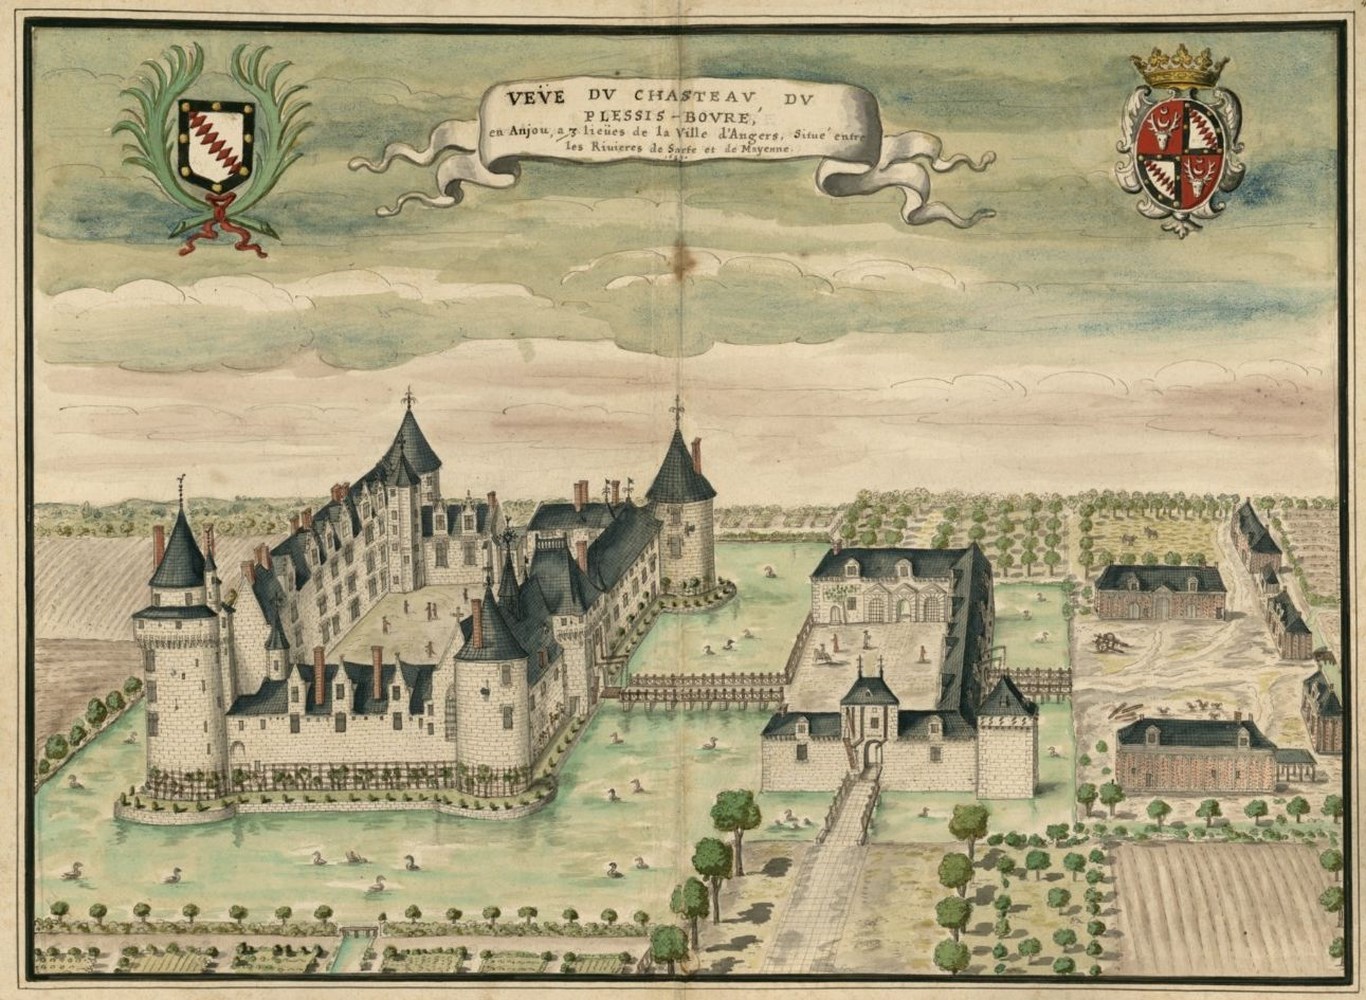 VEÜE DV CHASTEAV DV
PLESSIS-BOVRÉ,
en Anjou, a 3 lieües de la Ville d'Angers, Situé entre
les Rivieres de Sarte et de Mayenne.